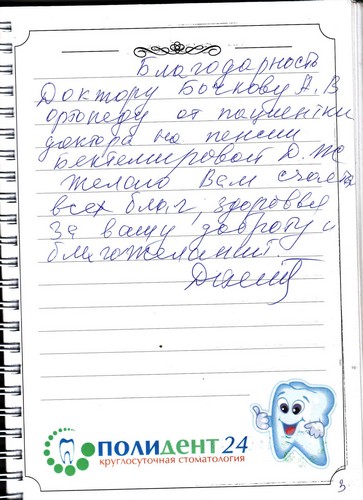 Благодарность
Доктору Бочкову А. В
ортопеду от пациентки
доктора на пенсии
Бектемировой Д. Ж
желаю Вам счастья
всех благ, здоровья
за вашу доброту и
благожелания.
ПОЛИДЕНТ 24
круглосуточная стоматология
3